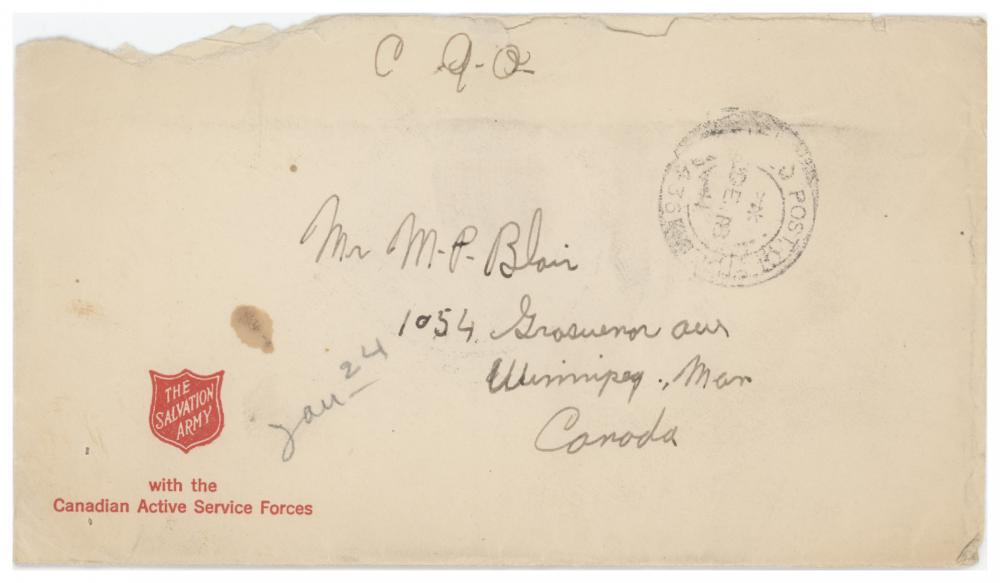 C A. O
POST OFFICE
DE 18
Mr M. P. Blair
1054 Grosvenor ave
Winnipeg., Man
Canada
Jan 24
THE
SALVATION
ARMY
with the
Canadian Active Service Forces